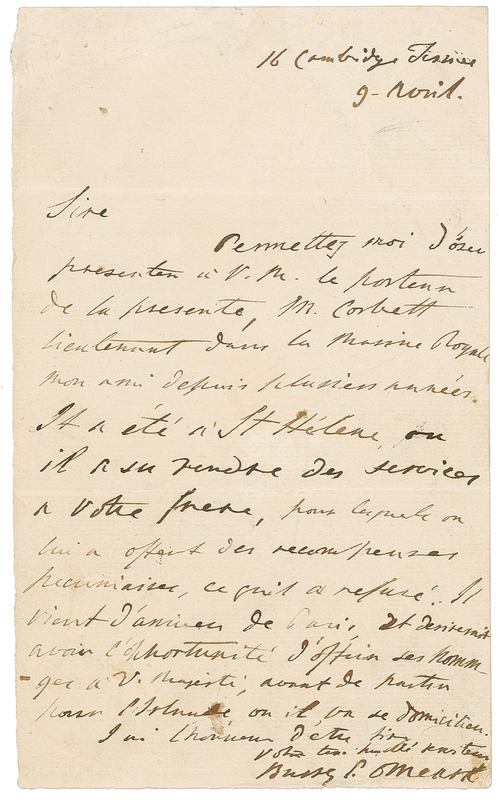 16 Cambridge Terrace
9 - Avril.
Sire
Permettez moi d'oser
presenter a V. M. le porteur
de la presente, M. Corbett
lieutenant dans la Marine Royale
mon ami depuis plusieurs années.
Il a été a St Hélene, ou
il a su rendre des services
a votre frere, pour lesquels on
lui a offert des recompenses
pecuniaires, ce qu'il a refusé. Il
vient d'arriver de Paris, et desirerait
avoir l'opportunité d'offrir ses homm-
ages a V. Majesté, avant de partir
pour l'Irlande ou il va se domicilier.
J'ai l'honneur d'etre Sire
votre tres
Barry E. OMeara